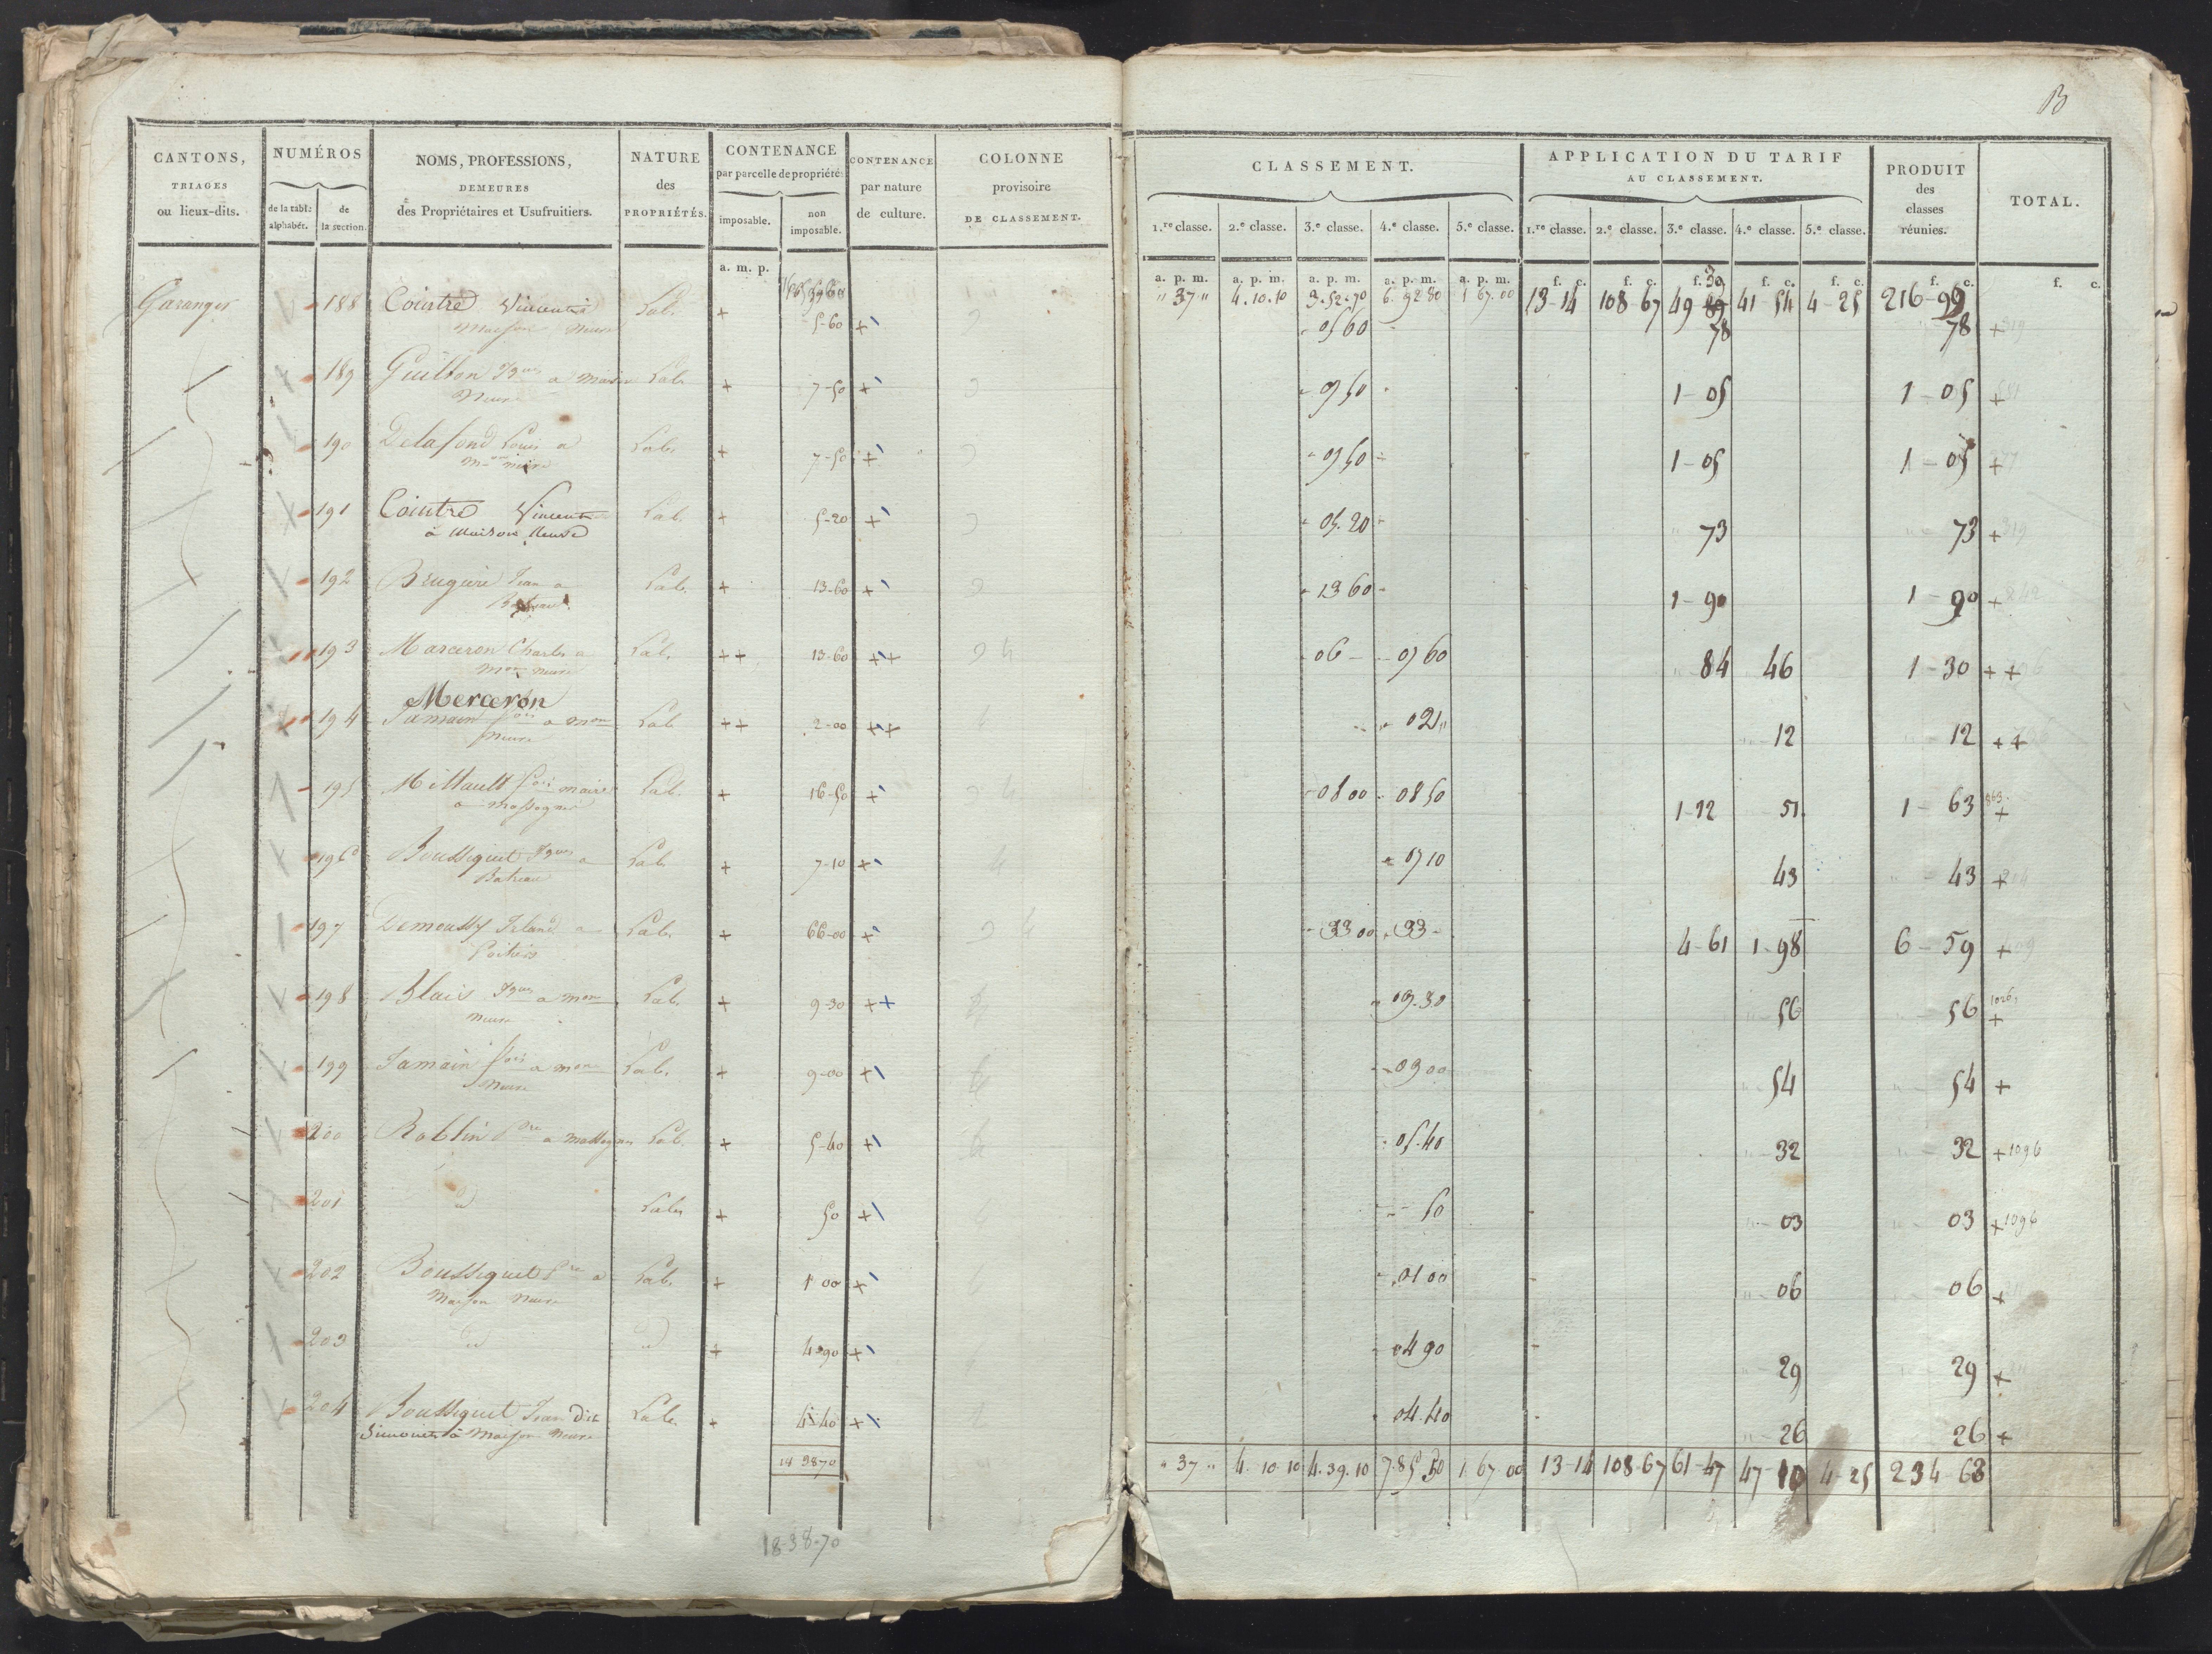 B
CANTONS, TRIAGES ou lieux-dits.
NUMÉROS de la table alphabét. de la section.
NOMS, PROFESSIONS, DEMEURES des Propriétaires et Usufruitiers.
NATURE des PROPRIÉTÉS.
CONTENANCE par parcelle de propriété: imposable. non imposable.
CONTENANCE par nature de culture.
COLONNE provisoire DE CLASSEMENT.
CLASSEMENT.
1.re classe. 2.e classe. 3.e classe. 4.e classe. 5.e classe.
APPLICATION DU TARIF AU CLASSEMENT.
1.re classe. 2.e classe. 3.e classe. 4.e classe. 5.e classe.
PRODUIT des classes réunies.
TOTAL.
a. m. p.
a. p. m. a. p. m. a. p. m. a. p. m. a. p. m. f. c. f. c. f. c. f. c. f. c. f. c. f. c.
" 37 " 4.10.10 3.52.70 6.92.80 1 67.00 13-14 108-67 49 30 41-54 4-25 216-99
Garanger 188 Cointre Vincent Lab. + 5-60 + 3 05 60 78 78 + 319
Maison Neuve
189 Guillon Jques a Maison Lab + 7-50 + 3 07 50 1-05 1-05 +
Neuve
190 Delafond Louis a Lab + 7-50 + 3 07 50 1-05 1-05 +
mon neuve
191 Cointre Vincent Lab. + 5-20 + 3 05.20 73 73 + 319
à Maison Neuve
192 Brugere Jean a Lab. + 13-60 + 3 13 60 1-90 1-90 +
193 Marceron Charles a Lab. ++ 13-60 ++ 3 4 06 07 60 84 46 1-30 ++
mon neuve
Merceron
194 Jamain fois a mon Lab ++ 2-00 ++ 4 02 " 12 12 ++
neuve
195 Millault fois maire Lab. + 16-50 + 3 4 08 00 08 50 1-12 51 1-63 863 +
a Massognes
196 Boussiquet Jques a Lab + 7-10 + 4 07 10 43 43 +
197 Demoussy a Lab. + 66-00 + 3 4 33 00 33 4-61 1-98 6-59 +
Poitiers
198 Blais Jques a mon Lab. + 9-30 ++ 4 09.30 56 56 1026 +
neuve
199 Jamain fois a mon Lab. + 9-00 + 4 09 00 54 54 +
Neuve
200 Roblin a Massognes Lab. + 5-40 + 4 05.40 32 32 + 1096
201 d Lab + 50 + 4 50 03 03 + 1096
202 Boussiquet a Lab. + 1 00 + 4 01 00 06 06 +
Maison Neuve
203 d d + 4 90 + 04 90 29 29 +
204 Boussiquet Jean dit Lab + 4 40 + 04.40 26 26 +
Simonet à Maison Neuve
18 3870 " 37 " 4.10 10 4.39.10 7.85 50 1 67 00 13-14 108-67 61-47 47-10 4-25 234-63
18-38-70